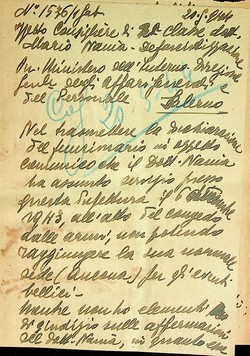 N° 1536/Gab 20.5.944
Consigliere di 2ª classe dott.
Mario Nania - defascistizzazione
On. Ministero dell'Interno Direzione
Generale degli affari Generali e
del Personale Palermo
Nel trasmettere la dichiarazione
del funzionario in oggetto
comunico che il Dott. Nania
ha assunto servizio presso
questa Prefettura il 6 settembre
1943, all'atto del congedo
dalle armi, non potendo
raggiungere la sua normale
sede (Ancona) per gli eventi
bellici -
non ho elementi
di giudizio sulle affermazioni
del dott. Nania, in quanto